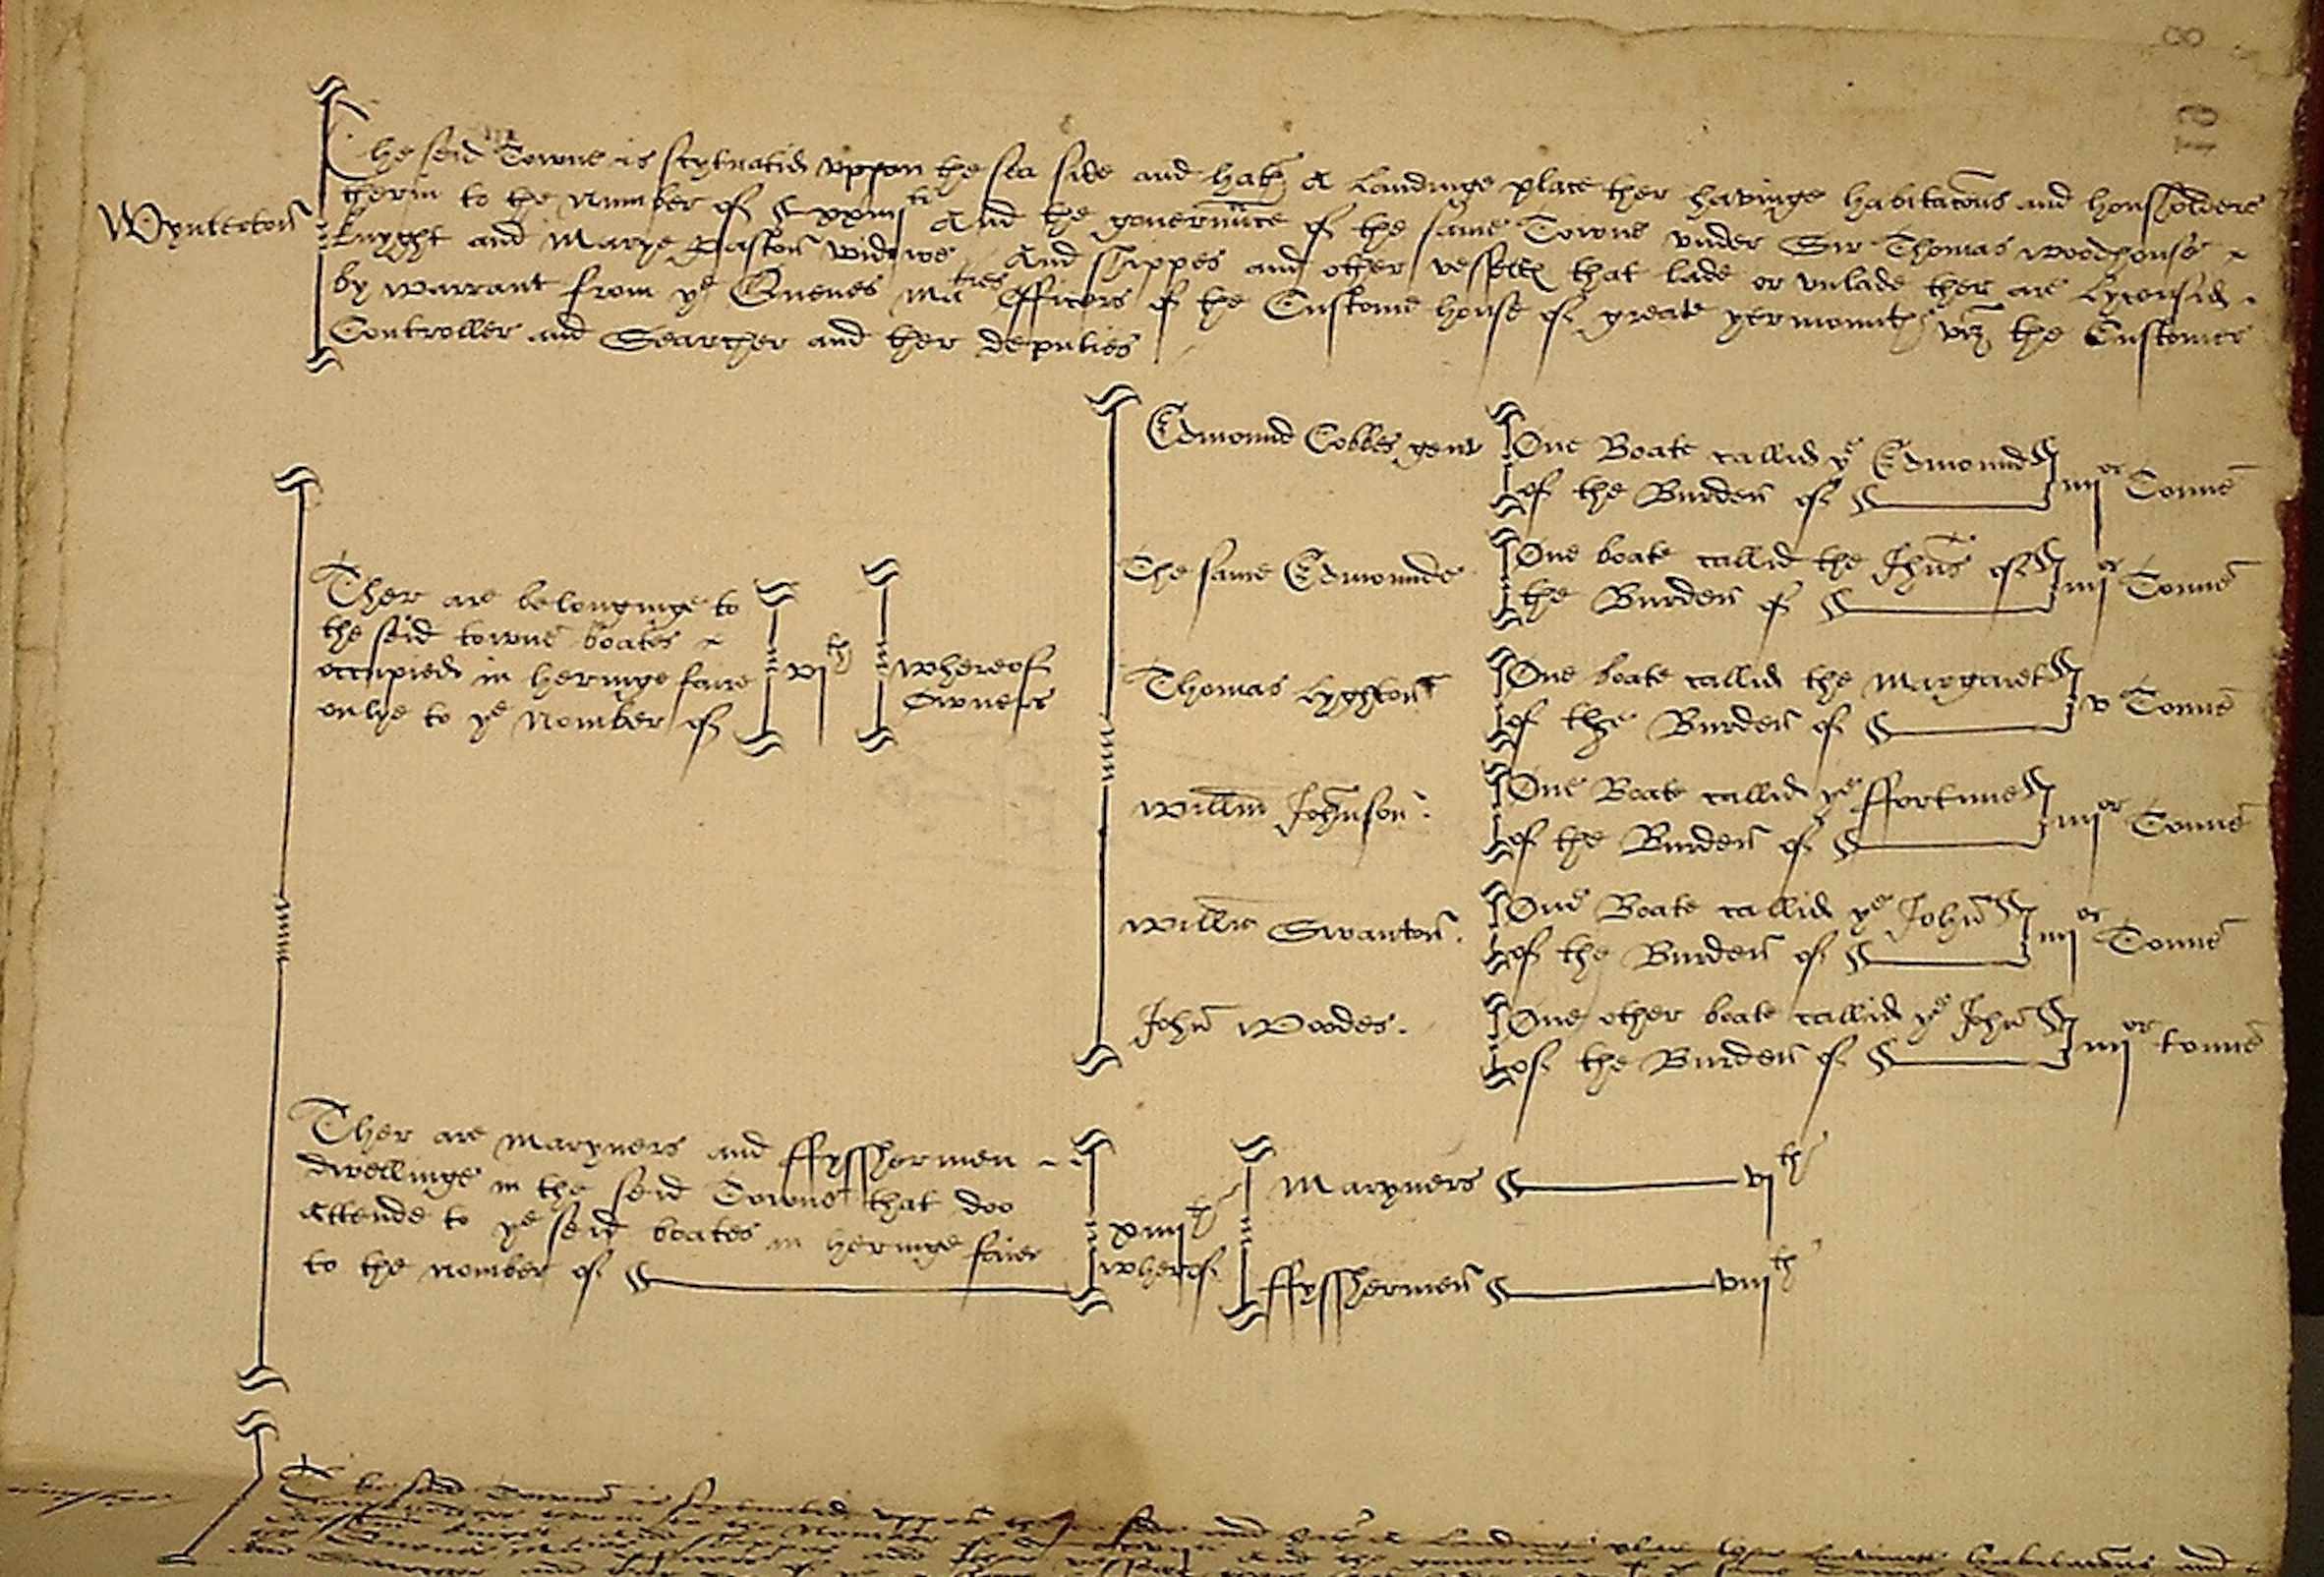 8
19
The seid Towne is scytuatid vppon the sea side and hath A Landinge place ther havinge habitacōns and housholders
Wynterton
therin to the Number of xxiiijti And the governn̄ce of the same Towne vnder Sir Thomas woodhouse
knyght and Marye Paston widowe And shippes and other vesselles that lade or vnlade ther are Lycensid
by warrant from ye Quenes maties Officers of the Custome house of greate yermouth viz the Customer
Controller and Searcher and ther deputies
Edmound Cobbes gent
One Boate callid ye Edmound
of the Burden of
iiijor Tonne
The same Edmounde
One boate callid the Jhūs of
the Burden of
iiijor Tonne
Ther are belonginge to
the seid towne boates
occupied in heringe faire
onlye to ye Nomber of
vjth
whereof
Owners
Thomas Lyghton
One boate callid the Margaret
of the Burden of
v Tonne
Willm̄ Johnson
One Boate callid ye ffortune
of the Burden of
iiijor Tonne
Willm̄ Swanton
One Boate callid ye John
of the Burden of
iiijor Tonne
John Woodes
One other boate callid ye John
of the Burden of
iiijor tonne
Ther are Maryners and ffysshermen
dwellinge in the seid Towne that doo
Attende to ye seid boates in heringe faier
to the nomber of
xiiijth
wherof
Maryners vjth
ffysshermen viijth
The said Towne is scytuatid vppon the sea side and hath A Landinge place ther havinge habitacōns and